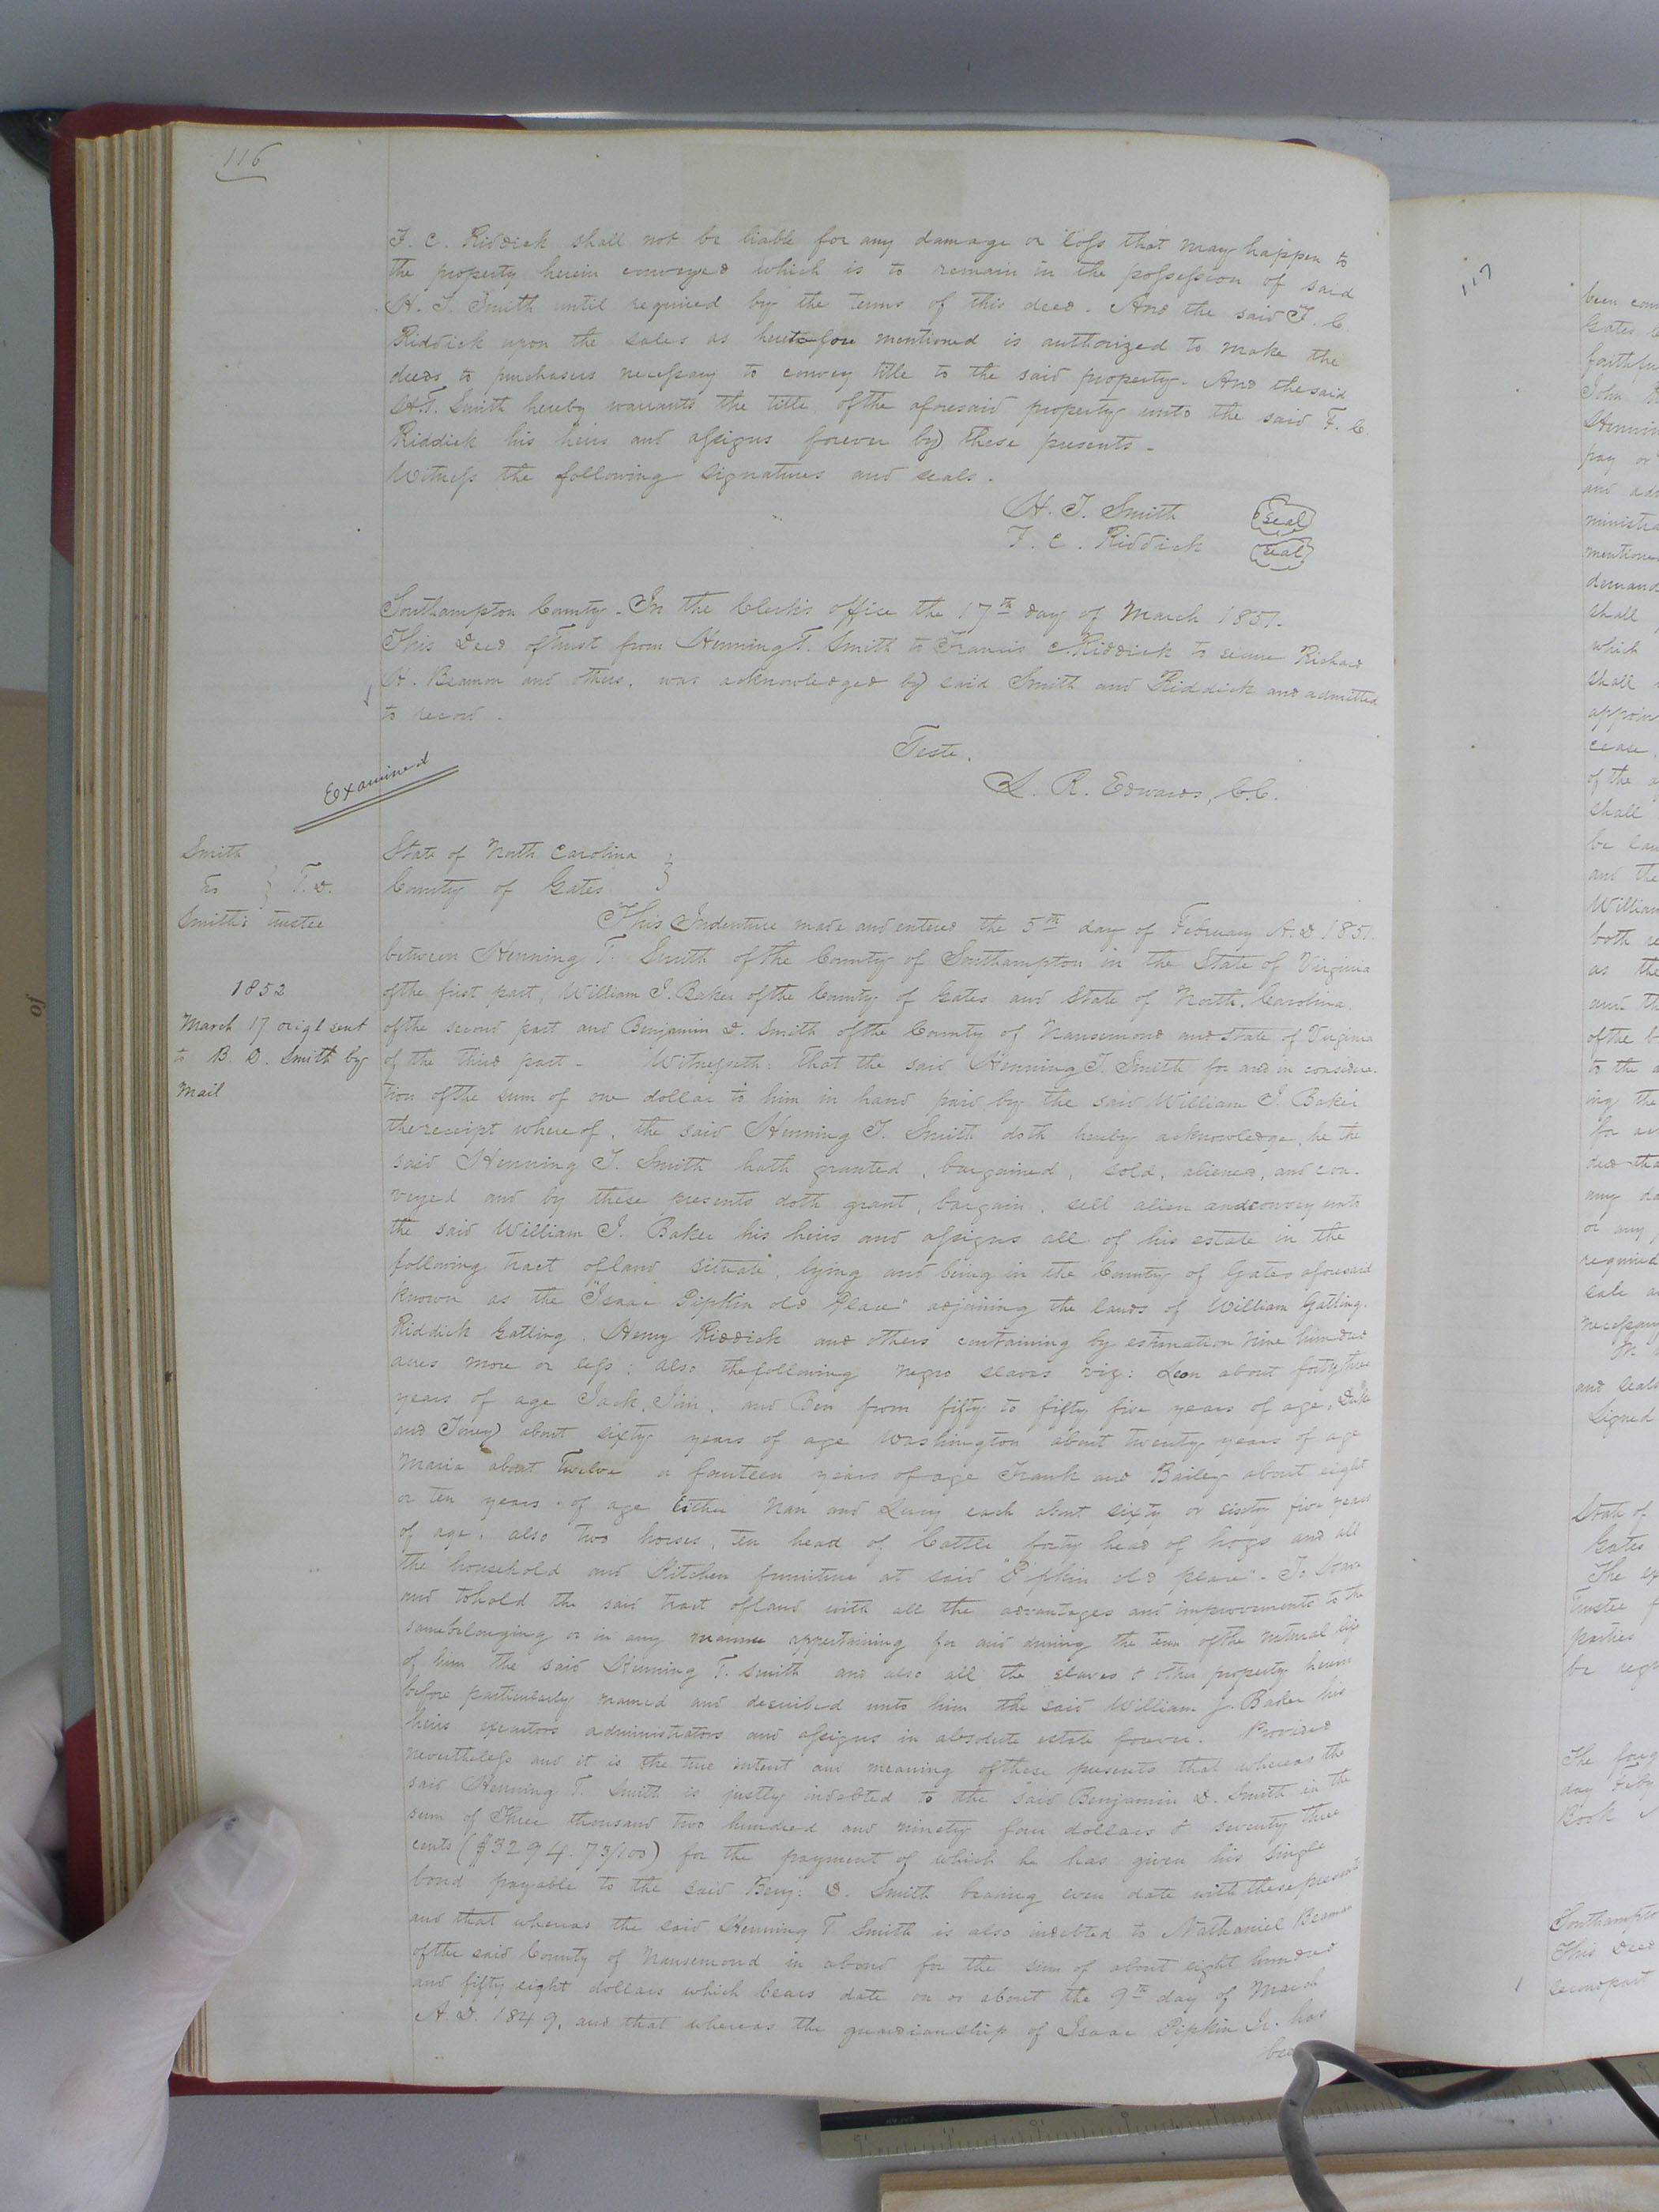 116
F. C. Riddick shall not be liable for any damage or loss that may happen to
the property herein conveyed which is to remain in the possession of said
H. T. Smith until required by the terms of this deed. And the said F. C.
Riddick upon the sales as heretofore mentioned is authorized to make the
deeds to purchasers necessary to convey title to the said property. And the said
H. T. Smith hereby warrants the title of the aforesaid property unto the said F. C.
Riddick his heirs and assigns forever by these presents.
Witness the following signatures and seals.
H. T. Smith seal
F. C. Riddick seal
Southampton County. In the Clerk's office the 17th day of March 1851.
This Deed of Trust from Henning T. Smith to Francis C. Riddick to secure Richard
H. Beamon and others, was acknowledged by said Smith and Riddick and admitted
to record.
Teste.
L. R. Edwards, C.C.
Examined
Smith
To } T. D.
Smith's trustee
1852
March 17 origl sent
to B. D. Smith by
mail
State of North Carolina
County of Gates
This Indenture made and entered the 5th day of February A.D 1851.
between Henning T. Smith of the County of Southampton in the State of Virginia
of the first part, William J. Baker of the County of Gates and State of North Carolina.
of the second part and Benjamin D. Smith of the County of Nansemond and State of Virginia
of the third part - Witnesseth: that the said Henning T. Smith for and in considera-
tion of the sum of one dollar to him in hand paid by the said William J. Baker
the receipt whereof, the said Henning T. Smith doth hereby acknowledge, he the
said Henning T. Smith hath granted, bargained, sold, aliened, and con-
veyed and by these presents doth grant, bargain, sell alien and convey unto
the said William J. Baker his heirs and assigns all of his estate in the
following tract of land situate, lying and being in the County of Gates aforesaid
known as the "Isaac Pipkin old Place" adjoining the lands of William Gatling.
Riddick Gatling, Henry Riddick and others containing by estimation Nine hundred
acres more or less: also the following negro slaves viz: Leon about forty three
years of age Jack, Jim, and Ben from fifty to fifty five years of age,
and Toney about sixty years of age Washington about twenty years of age
Maria about Twelve or fourteen years of age Frank and Bailey about eight
or ten years of age Esther Nan and Lucy each about sixty or sixty five years
of age. also two horses, ten head of Cattle forty head of hogs and all
the household and Kitchen furniture at said "Pipkin old place" - To have
and to hold the said tract of land with all the advantages and improvements to the
same belonging or in any manner appertaining for and during the term of the natural life
of him the said Henning T. Smith and also all the slaves & other property herein
before particularly named and described unto him the said William J. Baker his
heirs executors administrators and assigns in absolute estate forever. Provided
nevertheless and it is the true intent and meaning of these presents that whereas the
said Henning T. Smith is justly indebted to the said Benjamin D. Smith in the
sum of Three thousand two hundred and ninety four dollars & seventy three
cents ($3294.73/100) for the payment of which he has given his single
bond payable to the said Benj: D. Smith bearing even date with these presents
and that whereas the said Henning T Smith is also indebted to Nathaniel Beaman
of the said County of Nansemond in a bond for the sum of about eight hundred
and fifty eight dollars which bears date on or about the 9th day of March
A. D. 1849, and that whereas the guardianship of Isaac Pipkin Jr. has
117
been
Gates
John
pay or
and
shall
which
shall
cease
of the
shall
and the
William
as the
of the
to the
ing the
any
or any
required
and seals
Signed
State of
Gates
The
Trustee
parties
The
Book
Southampton
This Deed
second part